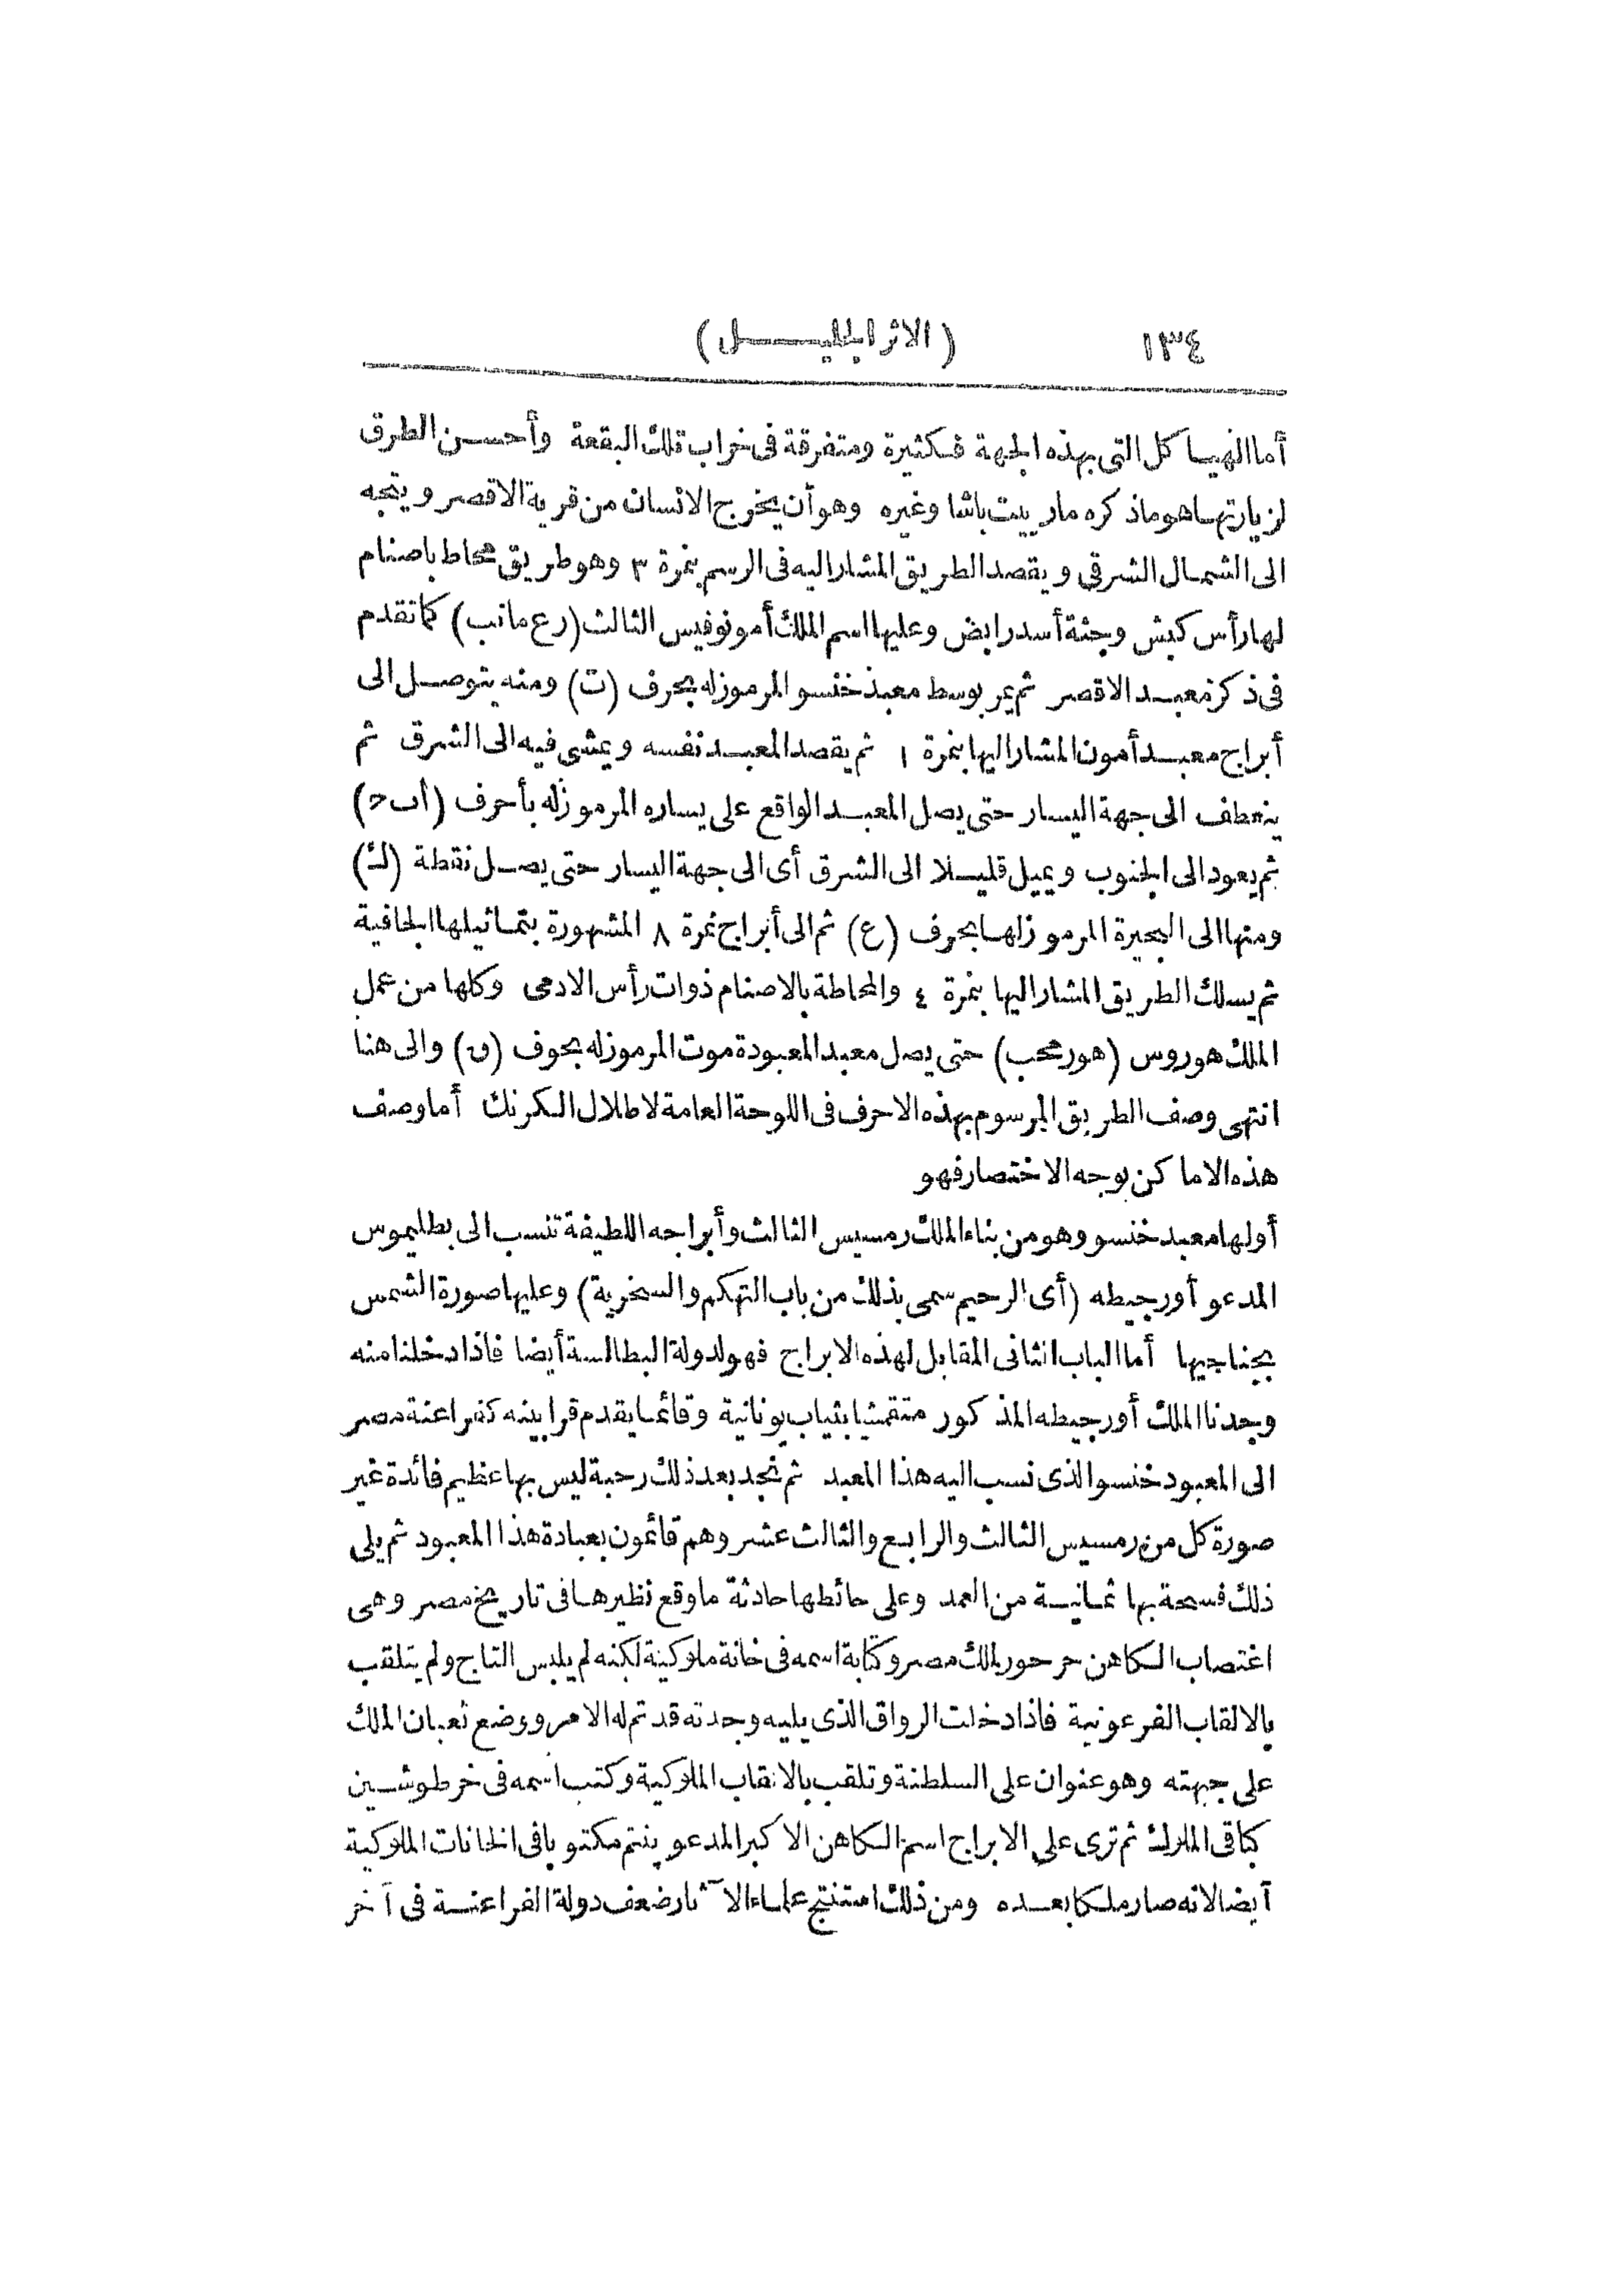 ١٣٤ (الاثر الجليـــــل)
أما الهياكل التى بهذه الجهة فكثيرة ومتفرقة فى خراب تلك البقعة وأحسن الطرق
لزيارتها هو ماذكره مارييت باشا وغيره وهو أن يخرج الانسان من قرية الاقصر ويتجه
الى الشمال الشرقى ويقصد الطريق المشار اليه فى الرسم بنمرة ٣ وهو طريق محاط باصنام
لها رأس كبش وجثة أسد رابض وعليها اسم الملك أمونوفيس الثالث (رع مانب) كما تقدم
فى ذكر معبد الاقصر ثم يمر بوسط معبد خنسو المرموز له بحرف (ت) ومنه يتوصل الى
أبراج معبد أمون المشار اليها بنمرة ١ ثم يقصد المعبد نفسه ويمشى فيه الى الشرق ثم
ينعطف الى جهة اليسار حتى يصل المعبد الواقع على يساره المرموز له بأحرف (أ ب ح)
ثم يعود الى الجنوب ويميل قليلا الى الشرق أى الى جهة اليسار حتى يصل نقطة (ك)
ومنها الى البحيرة المرموز لها بحرف (ع) ثم الى أبراج نمرة ٨ المشهورة بتماثيلها الجافية
ثم يسلك الطريق المشار اليها بنمرة ٤ والمحاطة بالاصنام ذوات رأس الادمى وكلها من عمل
الملك هوروس (هورمحب) حتى يصل معبد المعبودة موت المرموز له بحرف (ق) والى هنا
انتهى وصف الطريق المرسوم بهذه الاحرف فى اللوحة العامة لاطلال الكرنك أما وصف
هذه الاماكن بوجه الاختصار فهو
أولها معبد خنسو وهو من بناء الملك رمسيس الثالث وأبراجه اللطيفة تنسب الى بطليموس
المدعو أورجيطه (أى الرحيم سمى بذلك من باب التهكم والسخرية) وعليها صورة الشمس
بجناحيها أما الباب الثانى المقابل لهذه الابراج فهو لدولة البطالسة أيضا فاذا دخلنا منه
وجدنا الملك أورجيطه المذكور متقمشا بثياب يونانية وقائما يقدم قرابينه كفراعنة مصر
الى المعبود خنسو الذى نسب اليه هذا المعبد ثم نجد بعد ذلك رحبة ليس بها عظيم فائدة غير
صورة كل من رمسيس الثالث والرابع والثالث عشر وهم قائمون بعبادة هذا المعبود ثم يلى
ذلك فسحة بها ثمانية من العمد وعلى حائطها حادثة ما وقع نظيرها فى تاريخ مصر وهى
اغتصاب الكاهن حرحور بالملك مصر وكتابة اسمه فى خانة ملوكية لكنه لم يلبس التاج ولم يتلقب
بالالقاب الفرعونية فاذا دخلت الرواق الذى يليه وجدته قد تم له الامر ووضع ثعبان الملك
على جبهته وهو عنوان على السلطنة وتلقب بالالقاب الملوكية وكتب اسمه فى خرطوشين
كباقى الملوك ثم ترى على الابراج اسم الكاهن الاكبر المدعو پنتم مكتوبا فى الخانات الملوكية
أيضا لانه صار ملكا بعده ومن ذلك استنتج علماء الآثار ضعف دولة الفراعنة فى آخر